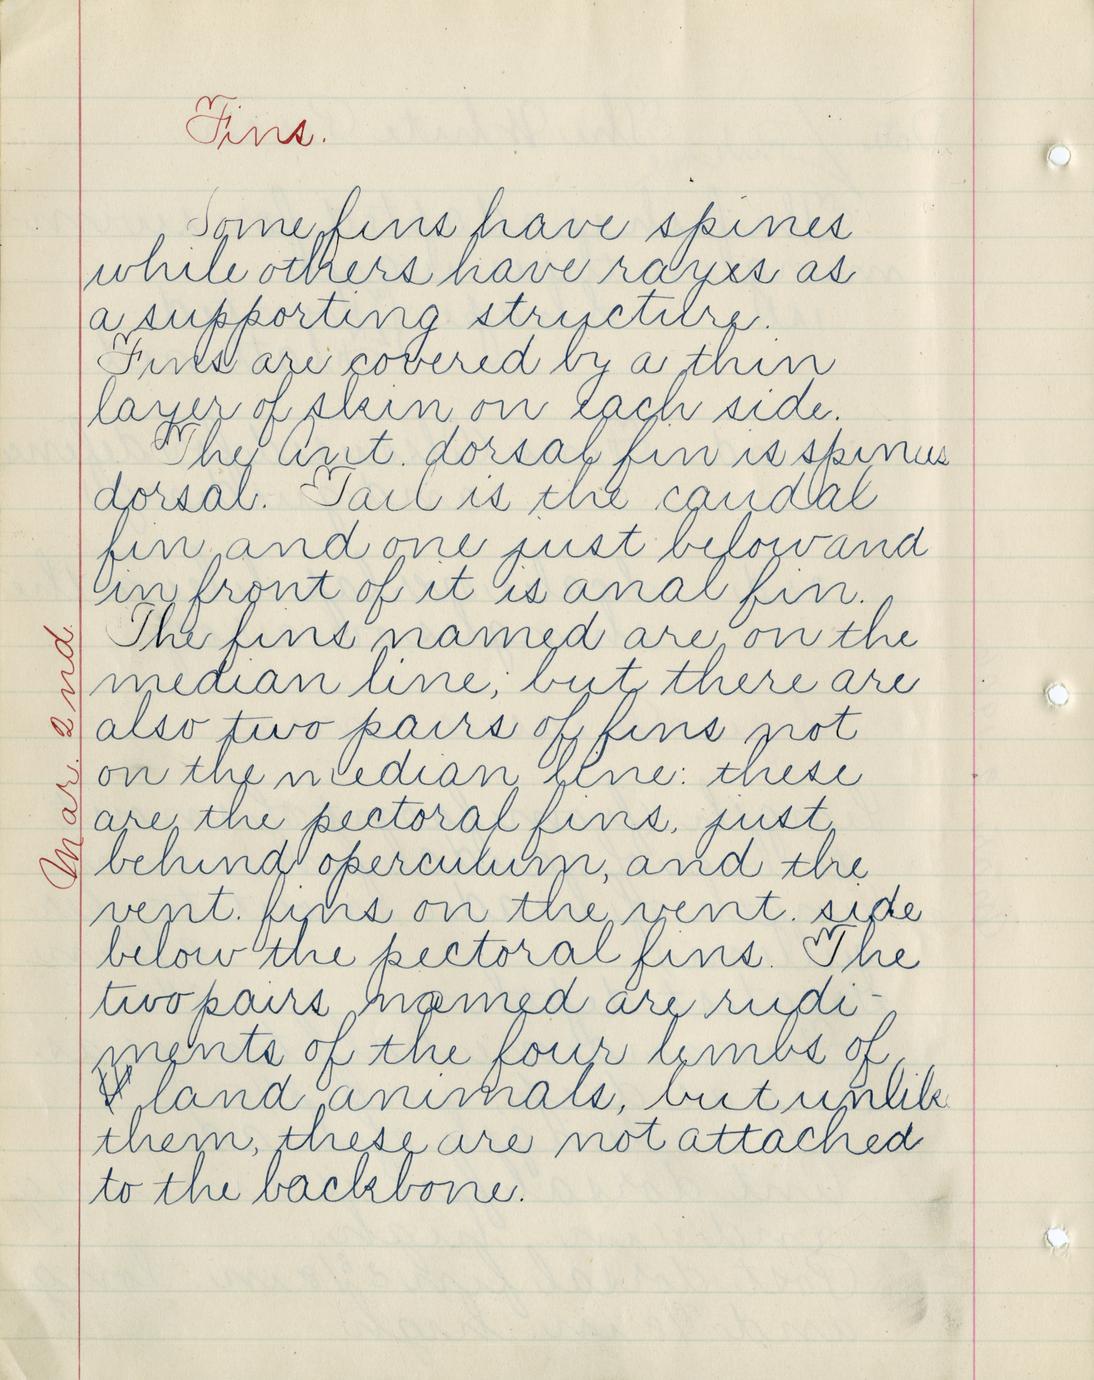 Fins.
Some fins have spines
while others have rayxs as
a supporting structure.
Fins are covered by a thin
layer of skin on each side.
The Ant. dorsal fin is spinus
dorsal. Tail is the caudal
fin and one just below and
in front of it is anal fin.
The fins named are on the
median line; but there are
also two pairs of fins not
on the median line: these
are the pectoral fins, just
behind operculum, and the
vent. fins on the vent. side
below the pectoral fins. The
two pairs named are rudi-
ments of the four limbs of
land animals, but unlike
them, these are not attached
to the backbone.
Mar. 2nd.